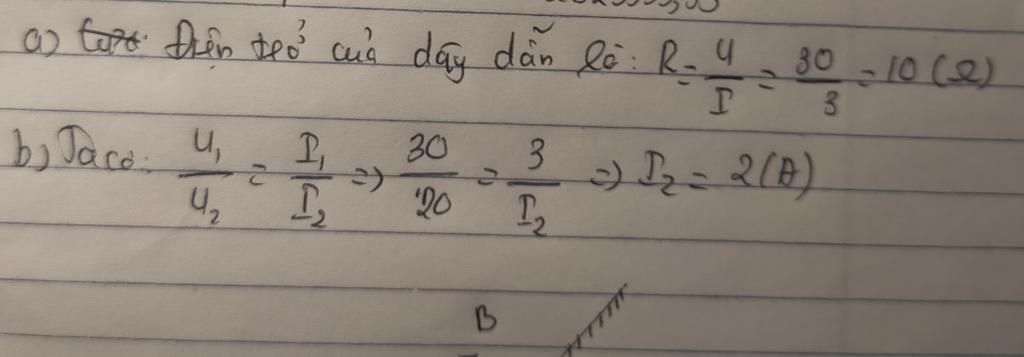 a) Điện trở của dây dẫn là: R = U/I = 30/3 = 10 (Ω)
b) Ta có: U₁/U₂ = I₁/I₂ => 30/20 = 3/I₂ => I₂ = 2(A)
B